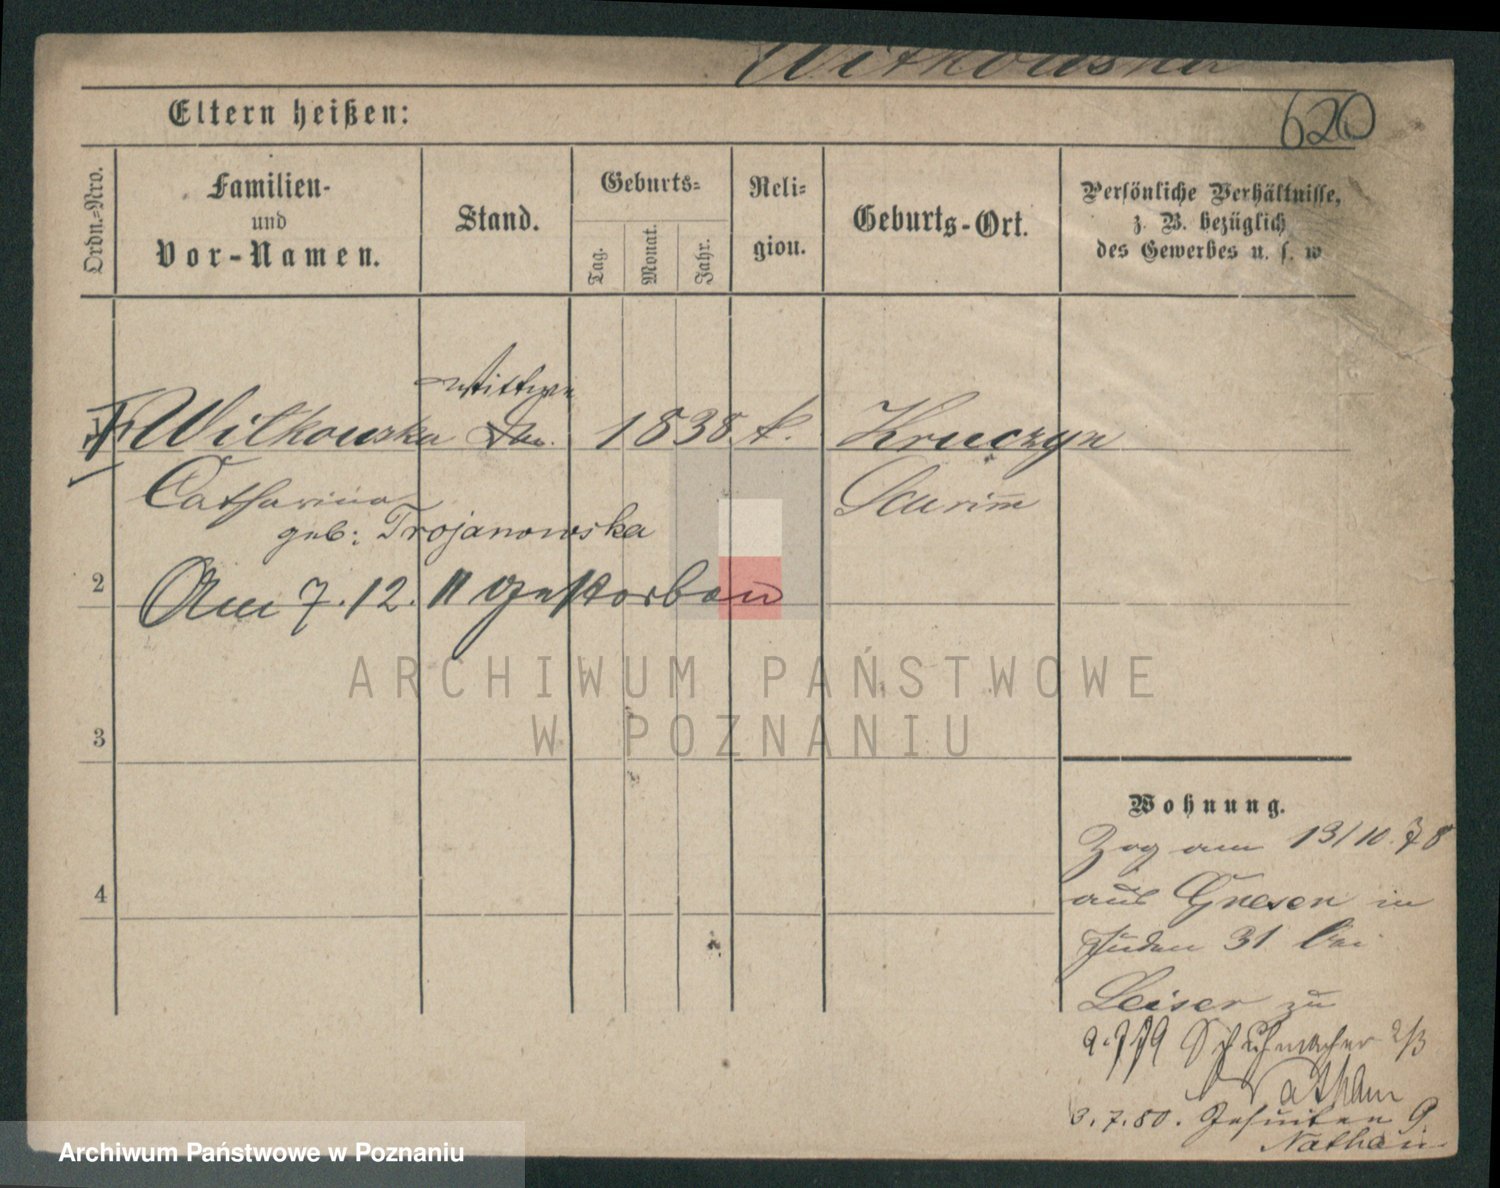 Witkowska
620
Eltern heißen:
Ordn.=Nro.
Familien-
und
Vor-Namen.
Stand.
Geburts=
Tag.
Monat.
Jahr.
Reli=
gion.
Geburts-Ort.
Persönliche Verhältnisse,
z. B. bezüglich
des Gewerbes u. s. w
Wittwe
Witkowska 1838 k. Kruczyn
Catharina
geb: Trojanowska
2
Am 7.12. gestorben
3
4
ARCHIWUM PAŃSTWOWE
W POZNANIU
Wohnung.
Zog am 13/10.78
aus Gnesen in
Juden 31 bei
Leiser zu
9.7 79 Schuhmacher 2/3
Nathan
3.7.80. Jesuiten 9
Nathan
Archiwum Państwowe w Poznaniu